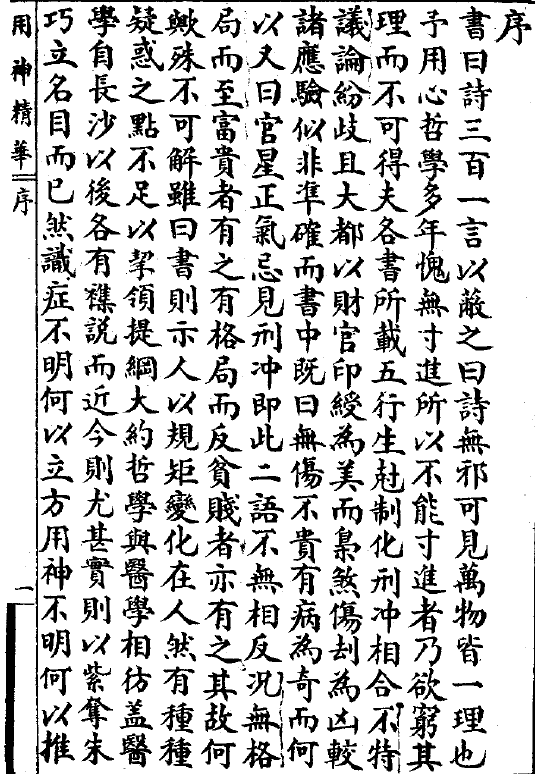 序
書曰詩三百一言以蔽之曰詩無邪可見萬物皆一理也
予用心哲學多年愧無寸進所以不能寸進者乃欲窮其
理而不可得夫各書所載五行生尅制化刑冲相合不特
議論紛歧且大都以財官印綬為美而梟煞傷刦為凶較
諸應驗似非準確而書中既曰無傷不貴有病為奇而何
以又曰官星正氣忌見刑冲即此二語不無相反况無格
局而至富貴者有之有格局而反貧賤者亦有之其故何
歟殊不可解雖曰書則示人以規矩變化在人然有種種
疑惑之點不足以挈領提綱大約哲學與醫學相彷盖醫
學自長沙以後各有襍説而近今則尤甚實則以紫奪朱
巧立名目而已然識症不明何以立方用神不明何以推
用神精華 序 一